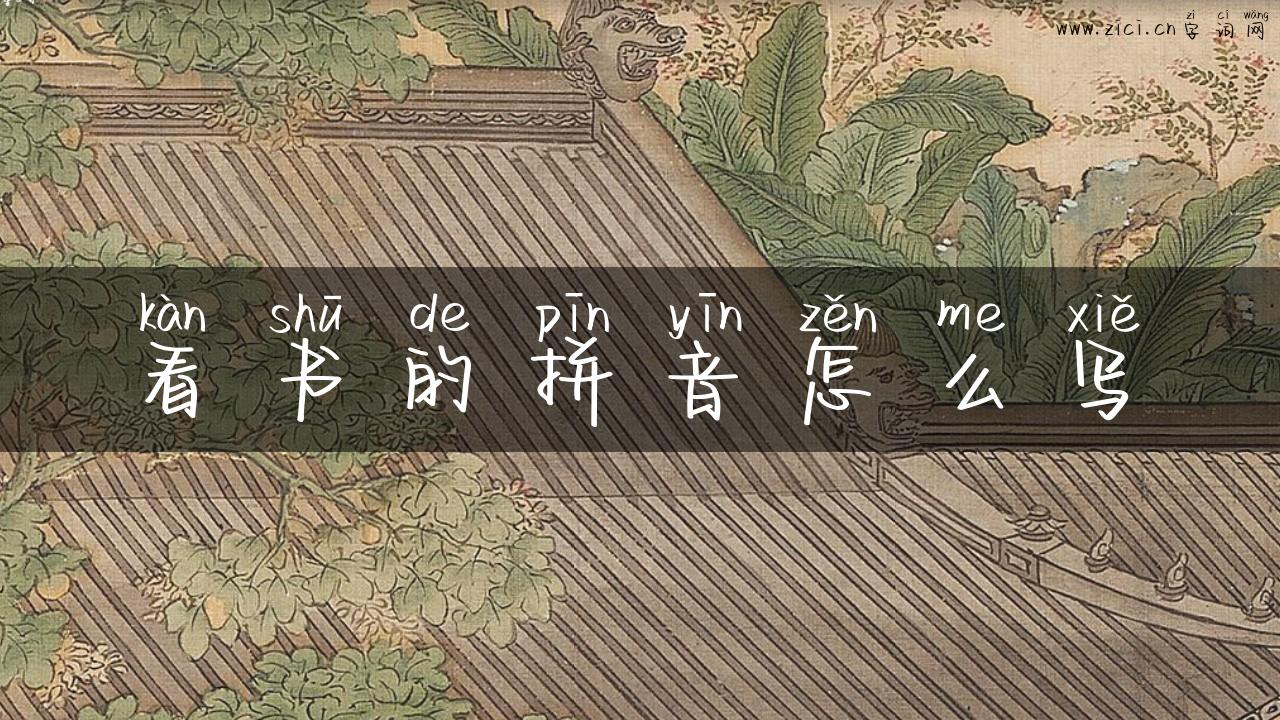 zì cí wǎng
www.zici.cn 字词网
kàn shū de pīn yīn zěn me xiě
看书的拼音怎么写